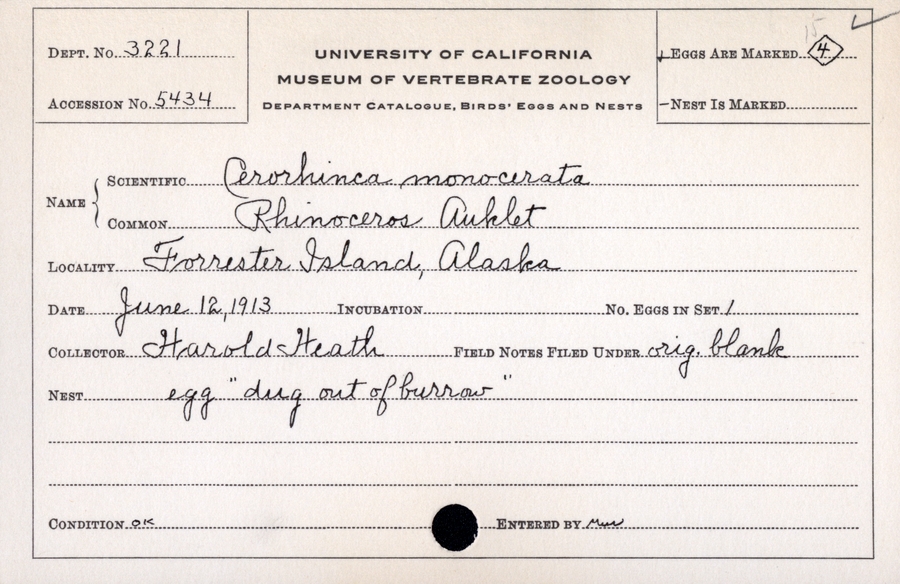 DEPT. No. 3221
ACCESSION No. 5434
UNIVERSITY OF CALIFORNIA
MUSEUM OF VERTEBRATE ZOOLOGY
DEPARTMENT CATALOGUE, BIRDS' EGGS AND NESTS
EGGS ARE MARKED 4
NEST IS MARKED
NAME
SCIENTIFIC Cerorhinca monocerata
COMMON Rhinoceros Auklet
LOCALITY Forrester Island, Alaska
DATE June 12, 1913 INCUBATION No. EGGS IN SET 1
COLLECTOR Harold Heath FIELD NOTES FILED UNDER orig. blank
NEST egg "dug out of burrow"
CONDITION OK ENTERED BY